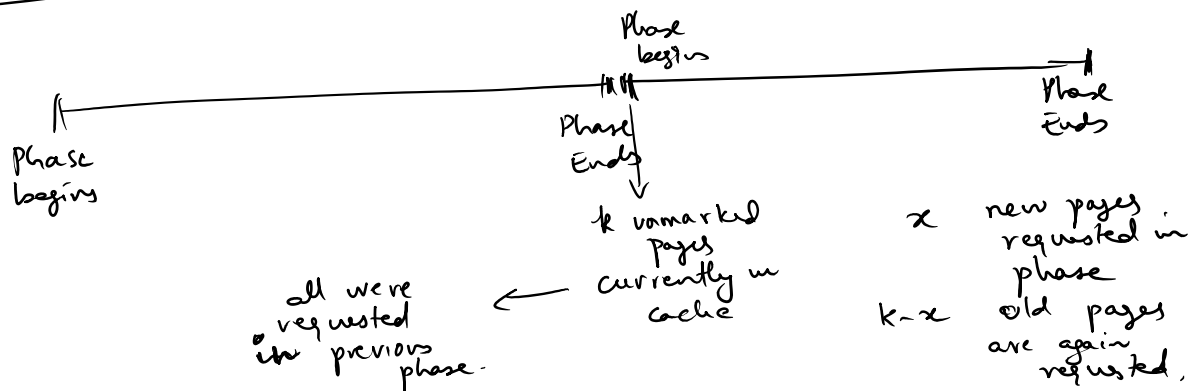 Phase
begins
Phase
begins
Phase
Ends
Phase
Ends
k unmarked
pages
currently in
cache
all were
requested
in previous
phase.
x new pages
requested in
phase
k-x old pages
are again
requested.